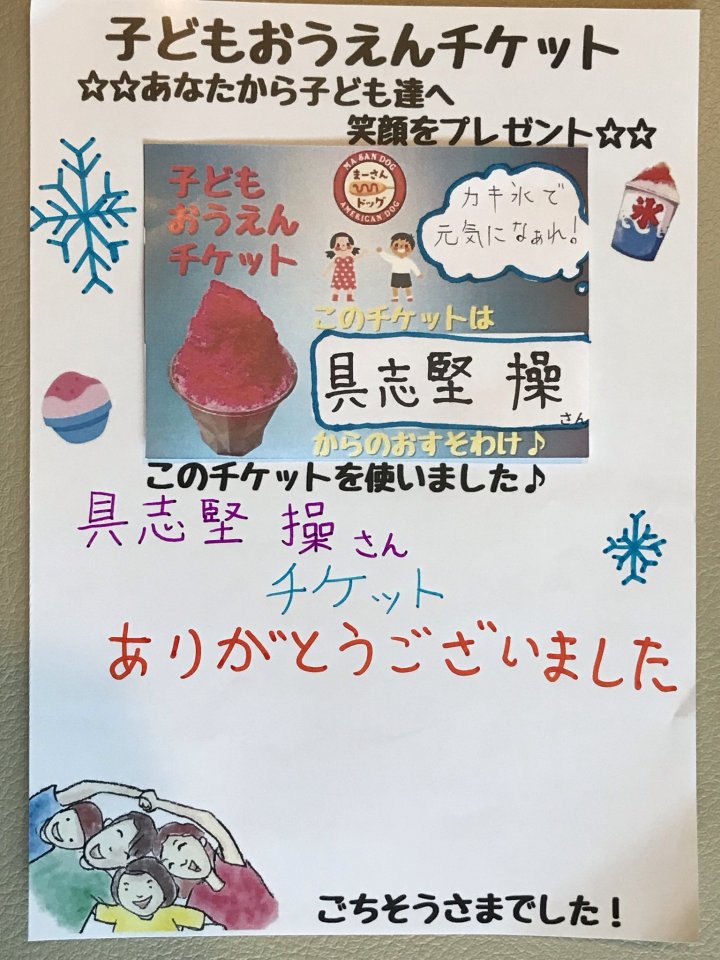 子どもおうえんチケット
☆☆あなたから子ども達へ
笑顔をプレゼント☆☆
子ども
おうえん
チケット
MA SAN DOG
まーさん
ドッグ
AMERICAN DOG
カキ氷で
元気になぁれ!
氷
このチケットは
具志堅 操
さん
からのおすそわけ♪
このチケットを使いました♪
具志堅 操さん
チケット
ありがとうございました
ごちそうさまでした!